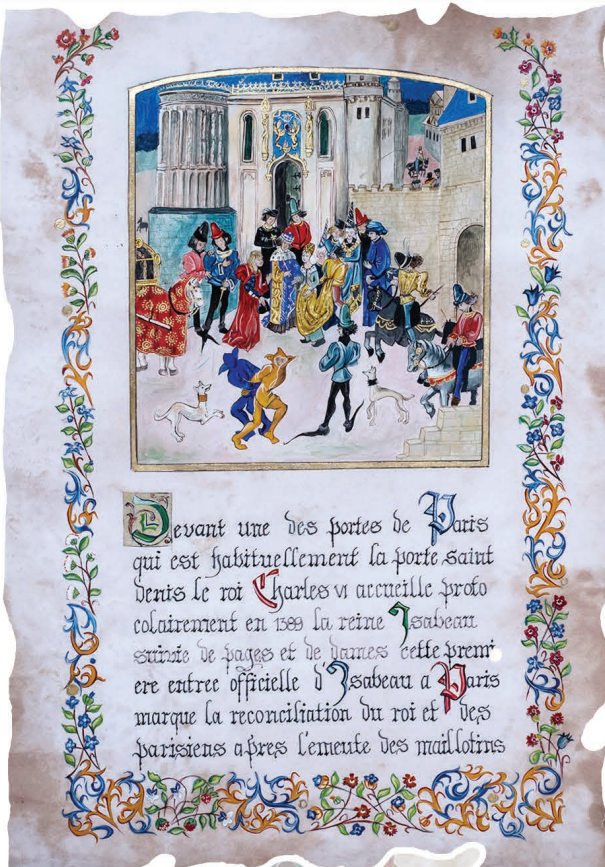 Devant une des portes de Paris
qui est habituellement la porte saint
denis le roi Charles VI accueille proto
colairement en 1389 la reine Isabeau
suivie de pages et de dames cette premi
ere entree officielle d'Isabeau a Paris
marque la reconciliation du roi et des
parisiens apres l'emeute des maillotins